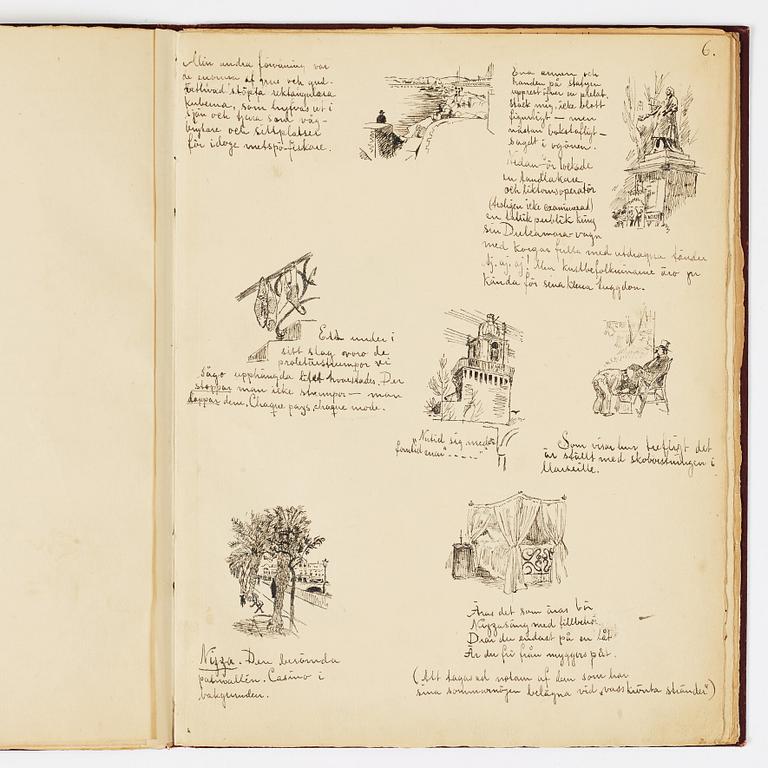 6.
Min andra förvåning var
de enorma af grus och
stöpta rektangulära
kuberna, som hufvas ut i
sjön och tjena som våg-
brytare och sittplatser
för idoge metspö-fiskare.
Ena armen och
handen på statyen
upprest öfver en
stack mig, icke blott
figurligt — men
nästan bokstafligt —
sagdt i ögonen.
Nedan-för lockade
en tandläkare
och liktornsoperatör
(troligen icke examinerad)
en publik kring
sin Dulcamara-vagn
med korgar fulla med utdragna tänder
Aj, aj, aj! Men kustbefolkningarne äro ju
kända för sena klena tuggdon.
Ett under i
sitt slag voro de
proletärstrumpor vi
sågo upphängda litet hvarstädes. Der
stoppar man icke strumpor — man
lappar dem. Chaque pays, chaque mode.
Nutid sig med
forntid enar" - - - - "
Som visar hur trefligt det
är ställt med skoborstningen i
Marseille.
Nizza. Den berömda
palmallén. Casino i
bakgrunden.
Äras det som äras bör
Nizzasäng med tillbehör
Drar du endast på en låt
Är du fri från myggors
(Att tagas ad notam af dem som har
sina sommarnöjen belägna vid „vasskrönta stränder")